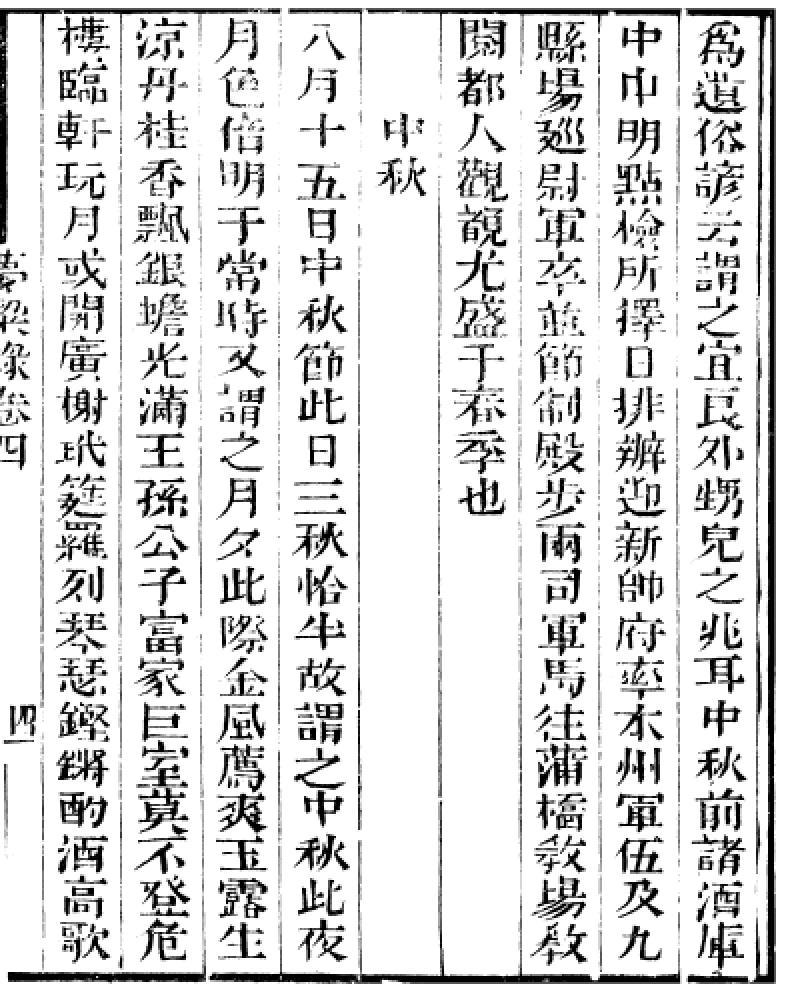 爲遺俗諺云謂之宜良外甥兒之兆耳中秋前諸酒庫
中申明點檢所擇日排辦迎新帥府率本州軍伍及九
縣場巡尉軍卒並節制殿步兩司軍馬往蒲橋敎場敎
閱都人觀覩尤盛于春季也
中秋
八月十五日中秋節此日三秋恰半故謂之中秋此夜
月色倍明于常時又謂之月夕此際金風薦爽玉露生
涼丹桂香飄銀蟾光滿王孫公子富家巨室莫不登危
樓臨軒玩月或開廣榭玳筵羅列琴瑟鏗鏘酌酒高歌
夢粱錄卷四
四